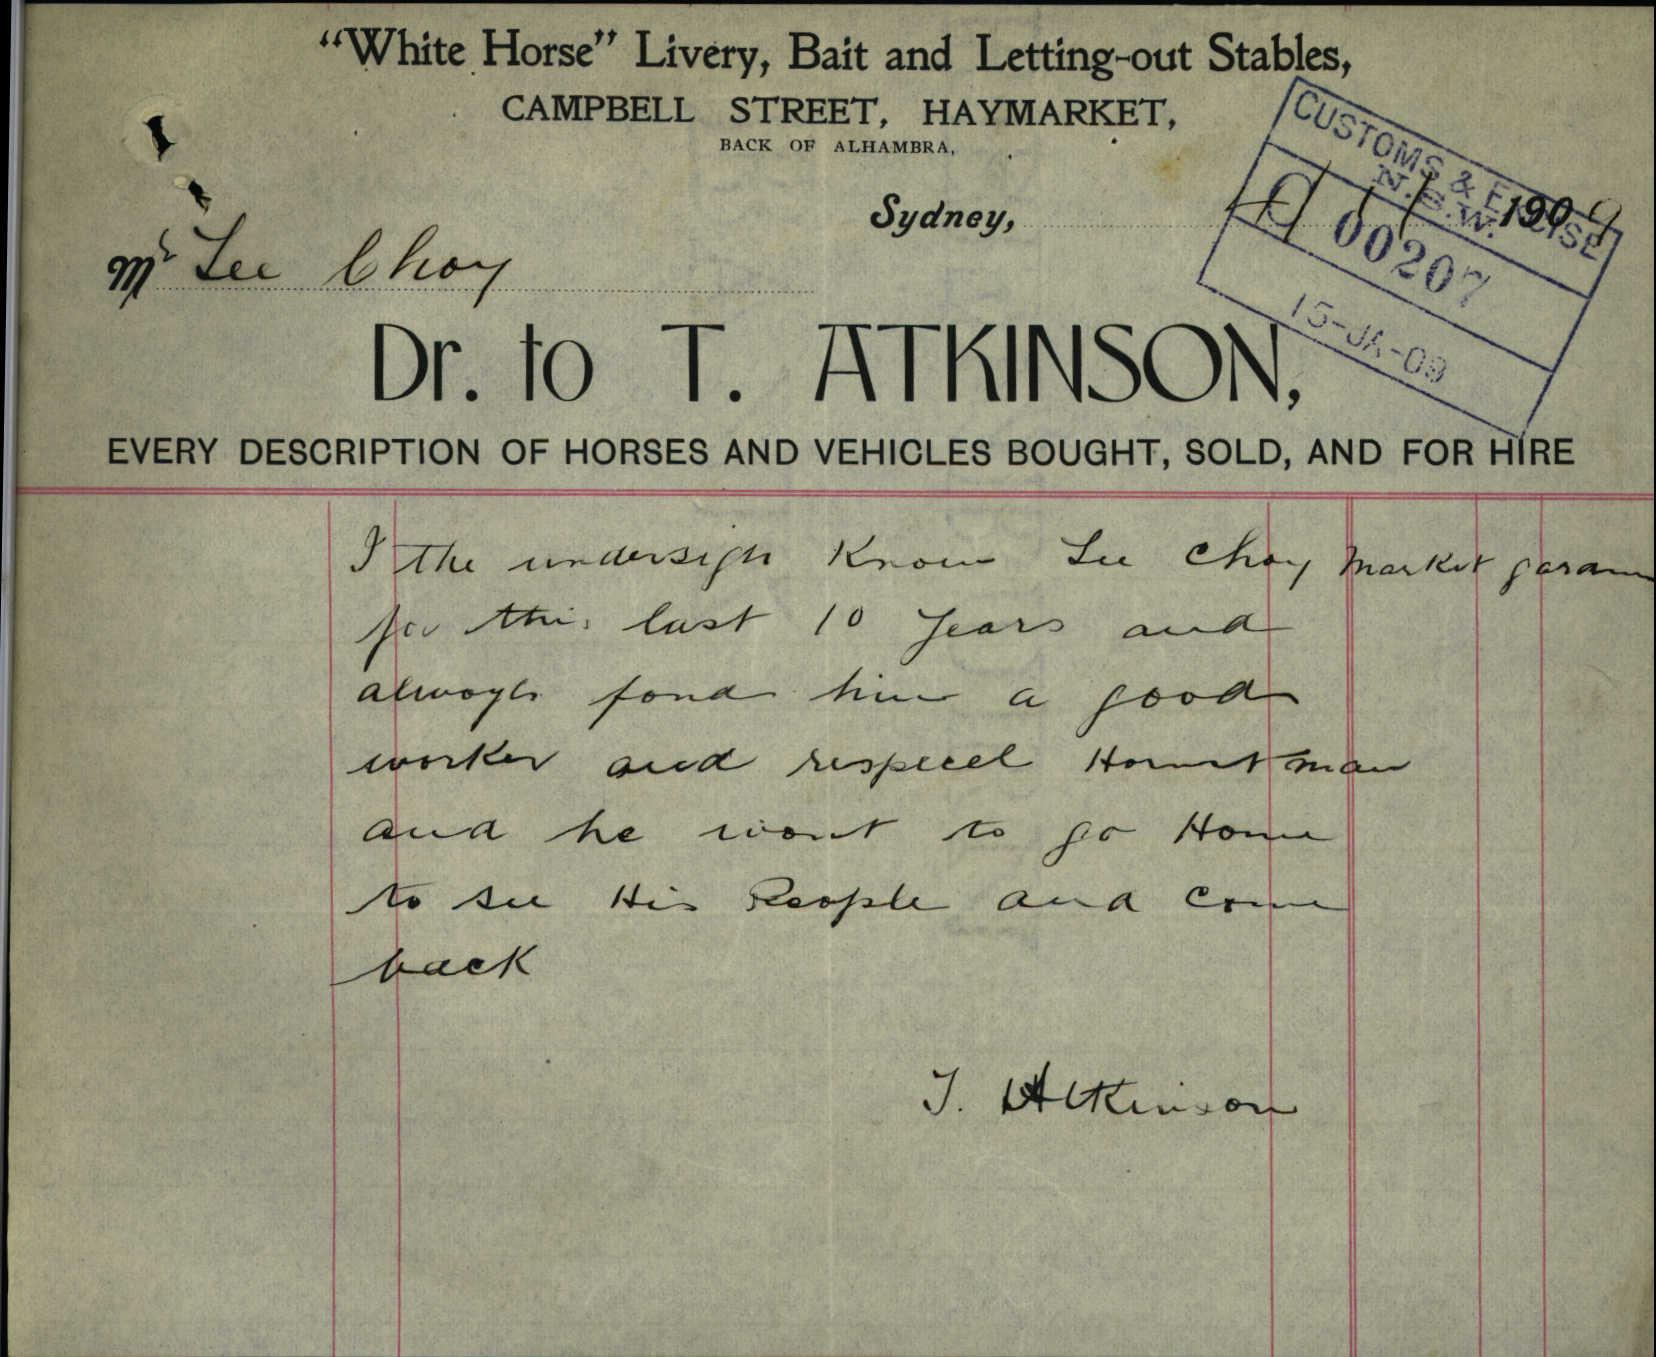 "White Horse" Livery, Bait and Letting-out Stables,
CAMPBELL STREET, HAYMARKET,
BACK OF ALHAMBRA,
CUSTOMS & EXCISE
N.S.W.
Sydney, 1909
C 09 00207
15-JA-09
Mr Lee Choy
Dr. to T. ATKINSON,
EVERY DESCRIPTION OF HORSES AND VEHICLES BOUGHT, SOLD, AND FOR HIRE
I the undersign Know Lee Choy Market
for this last 10 years and
always fond him a good
worker and man
and he want to go Home
to see His People and come
back
T. Atkinson